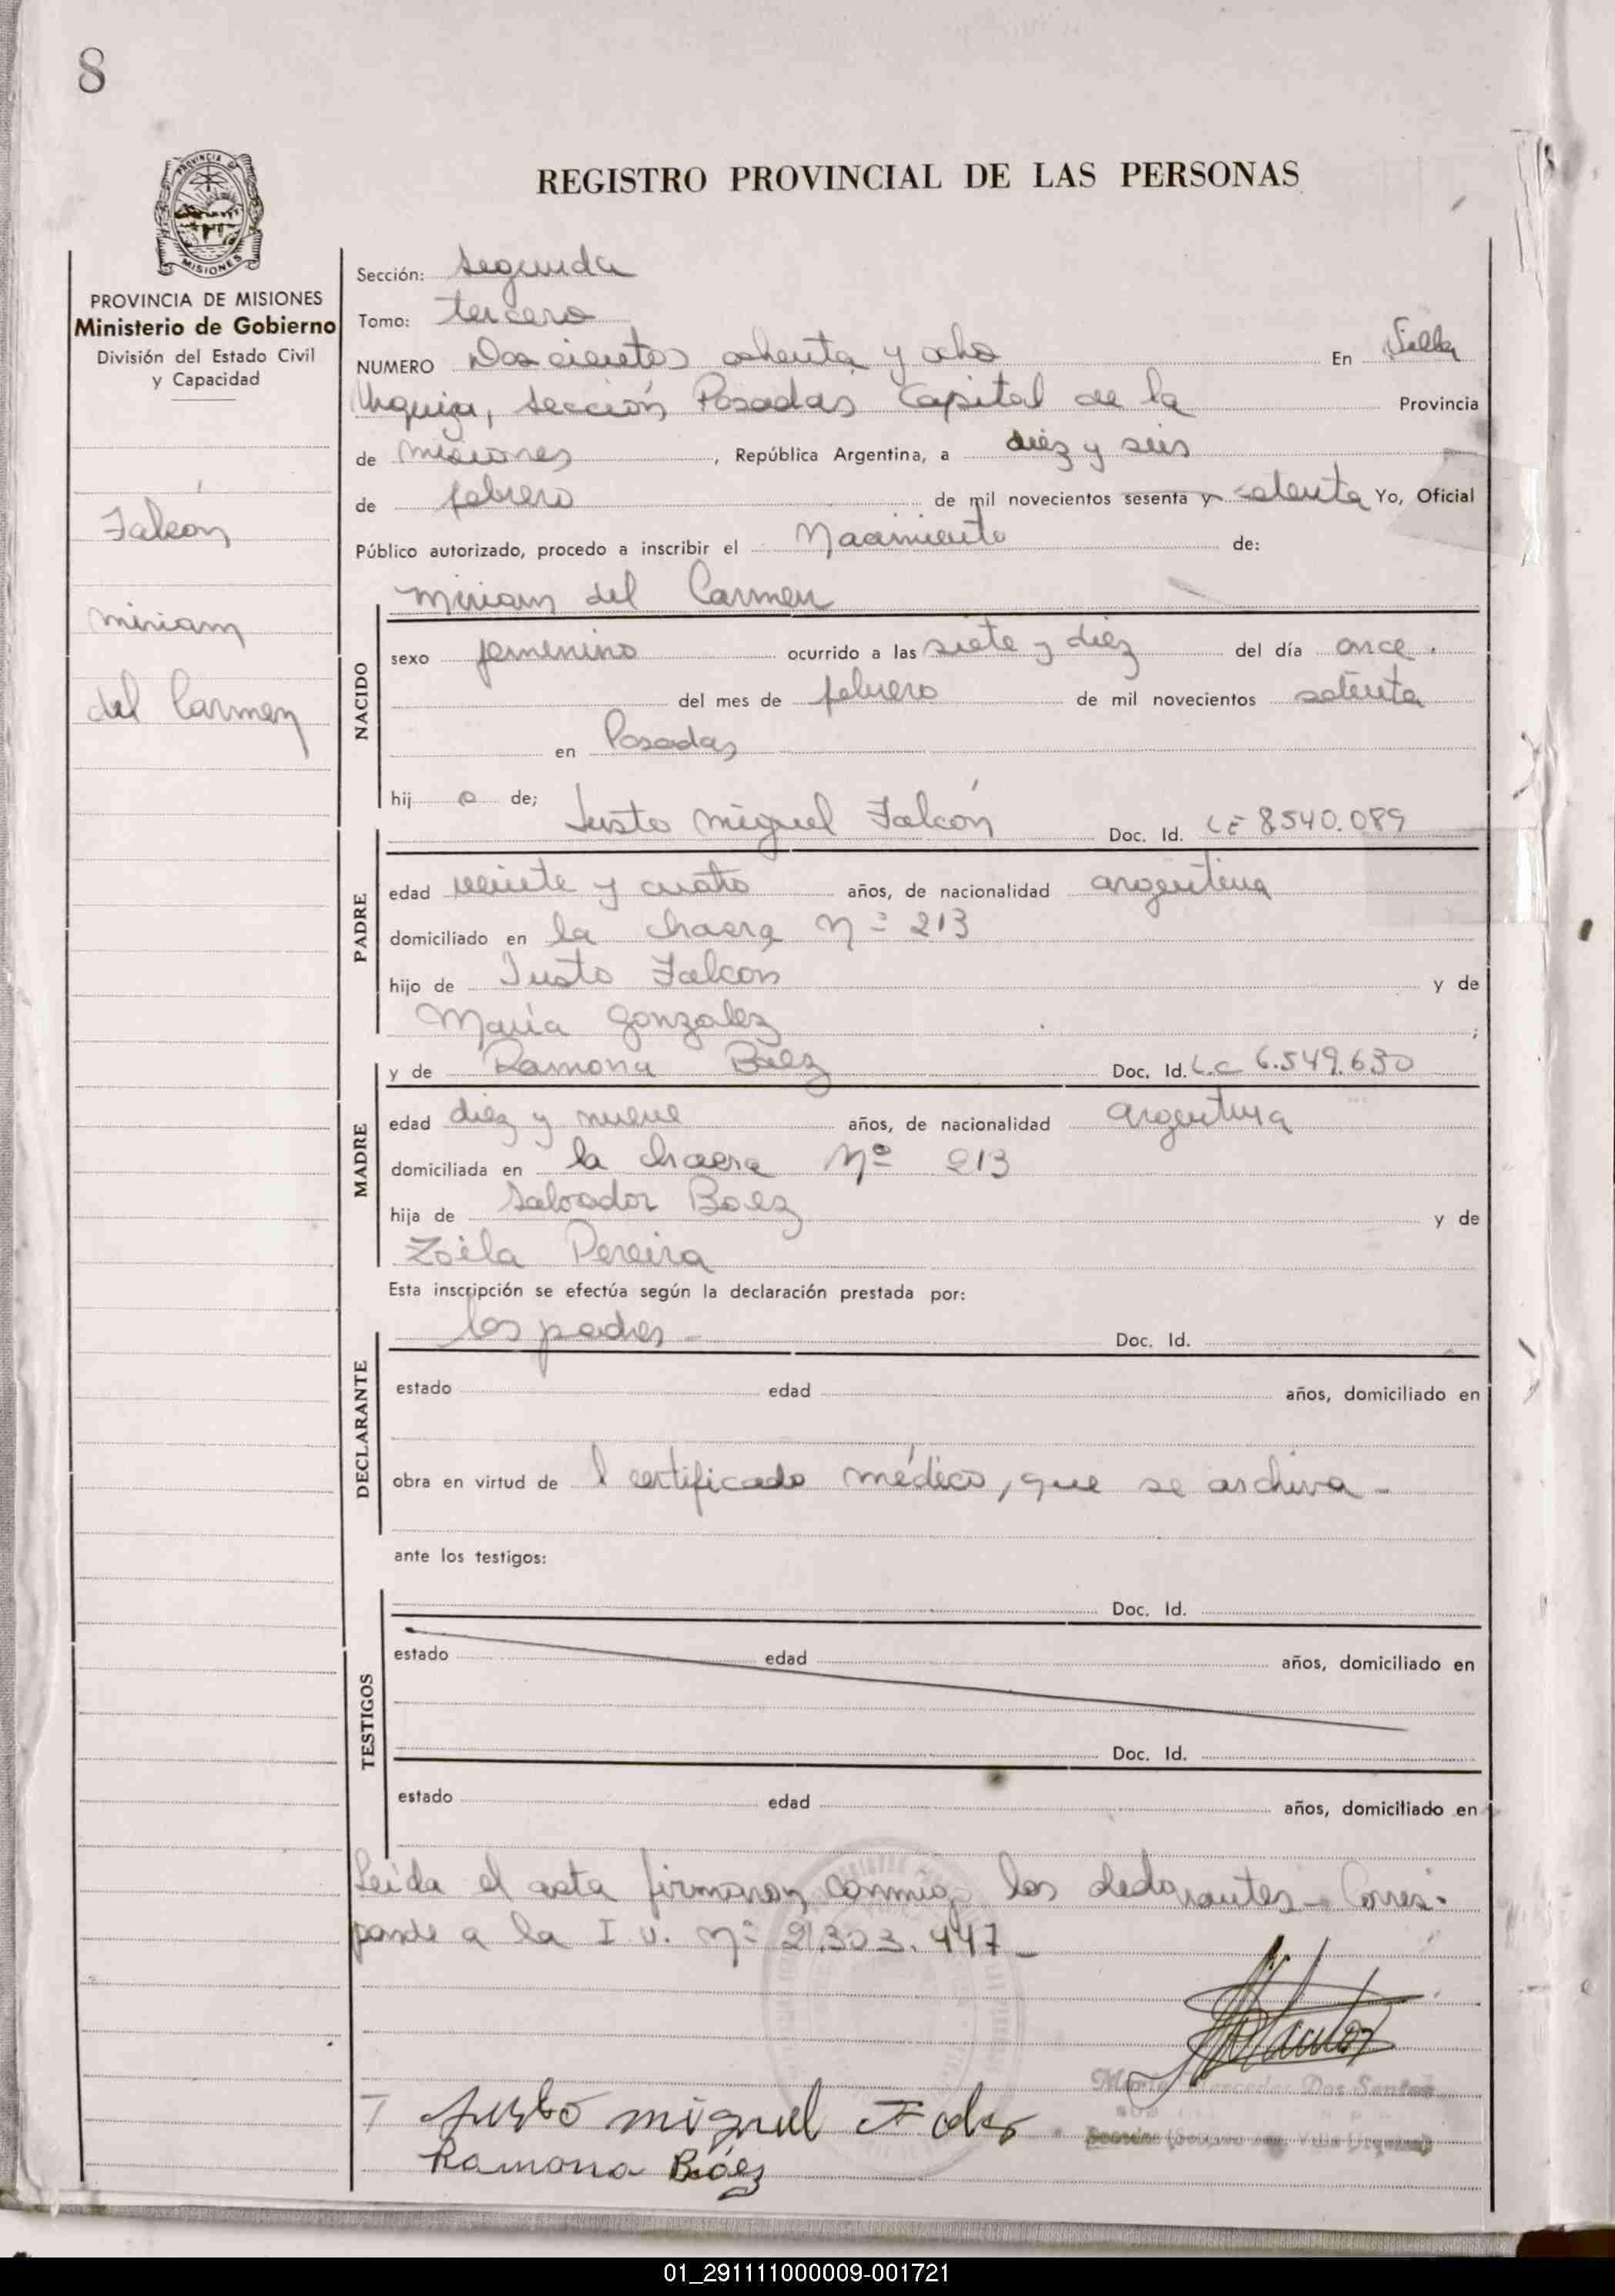 8
REGISTRO PROVINCIAL DE LAS PERSONAS
PROVINCIA DE MISIONES
MISIONES
PROVINCIA DE MISIONES
Ministerio de Gobierno
División del Estado Civil
y Capacidad
Falcon
miriam
del Carmen
Sección: segunda
Tomo: tercero
NUMERO Doscientos ochenta y ocho En Villa
Urquiza, sección Posadas Capital de la Provincia
de misiones, República Argentina, a diez y seis
de febrero de mil novecientos sesenta y setenta Yo, Oficial
Público autorizado, procedo a inscribir el Nacimiento de:
miriam del Carmen
NACIDO
sexo femenino ocurrido a las siete y diez del día once.
del mes de febrero de mil novecientos setenta
en Posadas
hij a de;
Justo miguel Falcón Doc. Id. LE 8540.089
PADRE
edad veinte y cuatro años, de nacionalidad argentina
domiciliado en la chacra Nº 213
hijo de Justo Falcón y de
María Gonzalez;
y de Ramona Baez Doc. Id. L.C 6.549.630
MADRE
edad diez y nueve años, de nacionalidad argentina
domiciliada en la chacra Nº 213
hija de Salvador Baez y de
Zoila Pereira
Esta inscripción se efectúa según la declaración prestada por:
los padres - Doc. Id.
DECLARANTE
estado edad años, domiciliado en
obra en virtud de l certificado médico, que se archiva -
ante los testigos:
Doc. Id.
TESTIGOS
estado edad años, domiciliado en
Doc. Id.
estado edad años, domiciliado en
Leída el acta firmaron conmigo los declarantes - Corres-
ponde a la I U. Nº 21.303.447 -
Dos Santos
Justo miguel
Ramona Báez
01_291111000009-001721